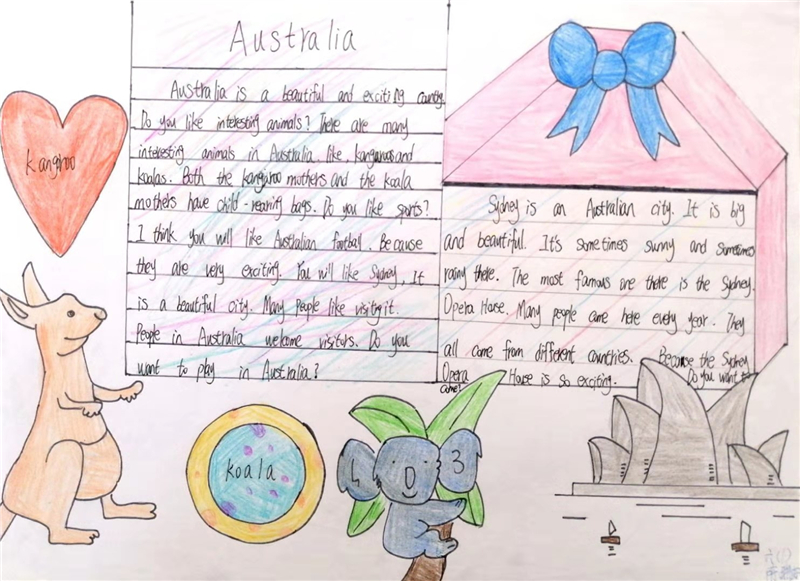 Australia
Australia is a beautiful and exciting country.
Do you like interesting animals? There are many
interesting animals in Australia. like, kangaroos and
koalas. Both the kangaroo mothers and the koala
mothers have child-rearing bags. Do you like sports?
I think you will like Australian football. Because
they are very exciting. You will like Sydney, It
is a beautiful city. Many people like visiting it.
People in Australia welcome visitors. Do you
want to play in Australia?
Kangaroo
Sydney is an Australian city. It is big
and beautiful. It's sometimes sunny and sometimes
rainy there. The most famous are there is the Sydney
Opera House. Many people come here every year. They
all come from different countries. Because the Sydney
Opera House is so exciting. Do you want to
come?
koala
3
六(1)